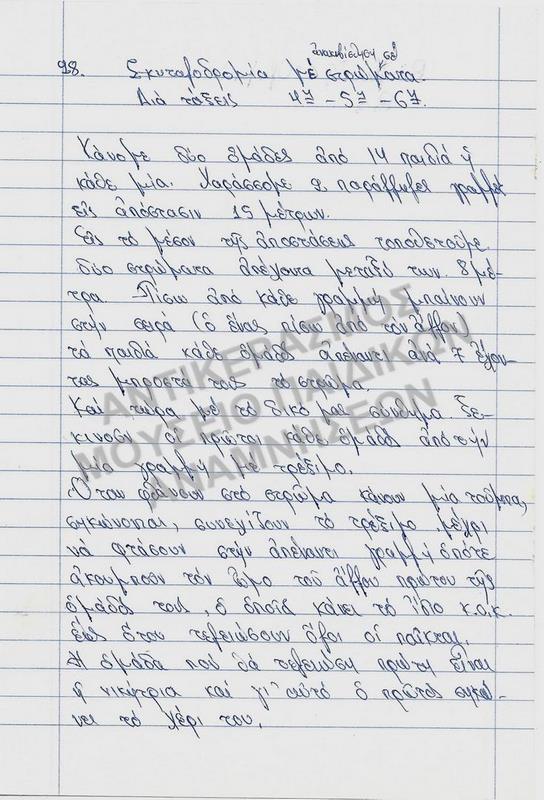 ἀνακυβίστηση σέ
98. Σκυταλοδρομία μέ στρώματα.
Διά τάξεις 4η - 5η - 6η.
Κάνομε δύο ὁμάδες ἀπό 14 παιδιά ἡ
κάθε μία. Χαράσσομε 2 παράλληλες γραμμές
εἰς ἀπόστασιν 15 μέτρων.
Εἰς τό μέσον τῆς ἀποστάσεως τοποθετοῦμε
δύο στρώματα ἀπέχοντα μεταξύ των 8 μέ-
τρα. Πίσω ἀπό κάθε γραμμή μπαίνουν
στήν σειρά (ὁ ἕνας πίσω ἀπό τον ἄλλον)
τά παιδιά κάθε ὁμάδος ἀπέναντι ἀνά 7 ἔχον-
τας μπροστά τους τό στρῶμα.
Καί τώρα μέ τό δικό μας σύνθημα ξε-
κινοῦν οἱ πρῶτοι κάθε ὁμάδος ἀπό τήν
μία γραμμή μέ τρέξιμο.
Ὅταν φθάνουν στό στρῶμα κάνουν μία τούμπα,
σηκώνονται, συνεχίζουν τό τρέξιμο μέχρι
νά φτάσουν στήν ἀπέναντι γραμμή ὁπότε
ἀκουμποῦν τόν ὦμο τοῦ ἄλλου πρώτου τῆς
ὁμάδος τους, ὁ ὁποῖος κάνει τό ἴδιο κ.ο.κ.
ἕως ὅτου τελειώσουν ὅλοι οἱ παῖκται.
Ἡ ὁμάδα πού θά τελειώση πρώτη εἶναι
ἡ νικήτρια καί γι' αὐτό ὁ πρῶτος σηκώ-
νει τό χέρι του.
ΑΝΤΙΚΕΡΑΣΜΟΣ
ΜΟΥΣΕΙΟ ΠΑΙΔΙΚΩΝ
ΑΝΑΜΝΗΣΕΩΝ